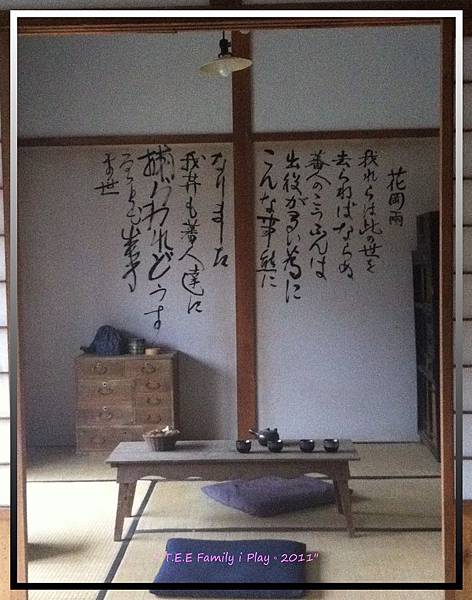 花岡兩
我れらは此の世を
去らねばならぬ
蕃人のこうふんは
出役が多い為に
こんな事件に
なりました
我等も蕃人達に
どうす
"T.E.E Family i Play。2011"